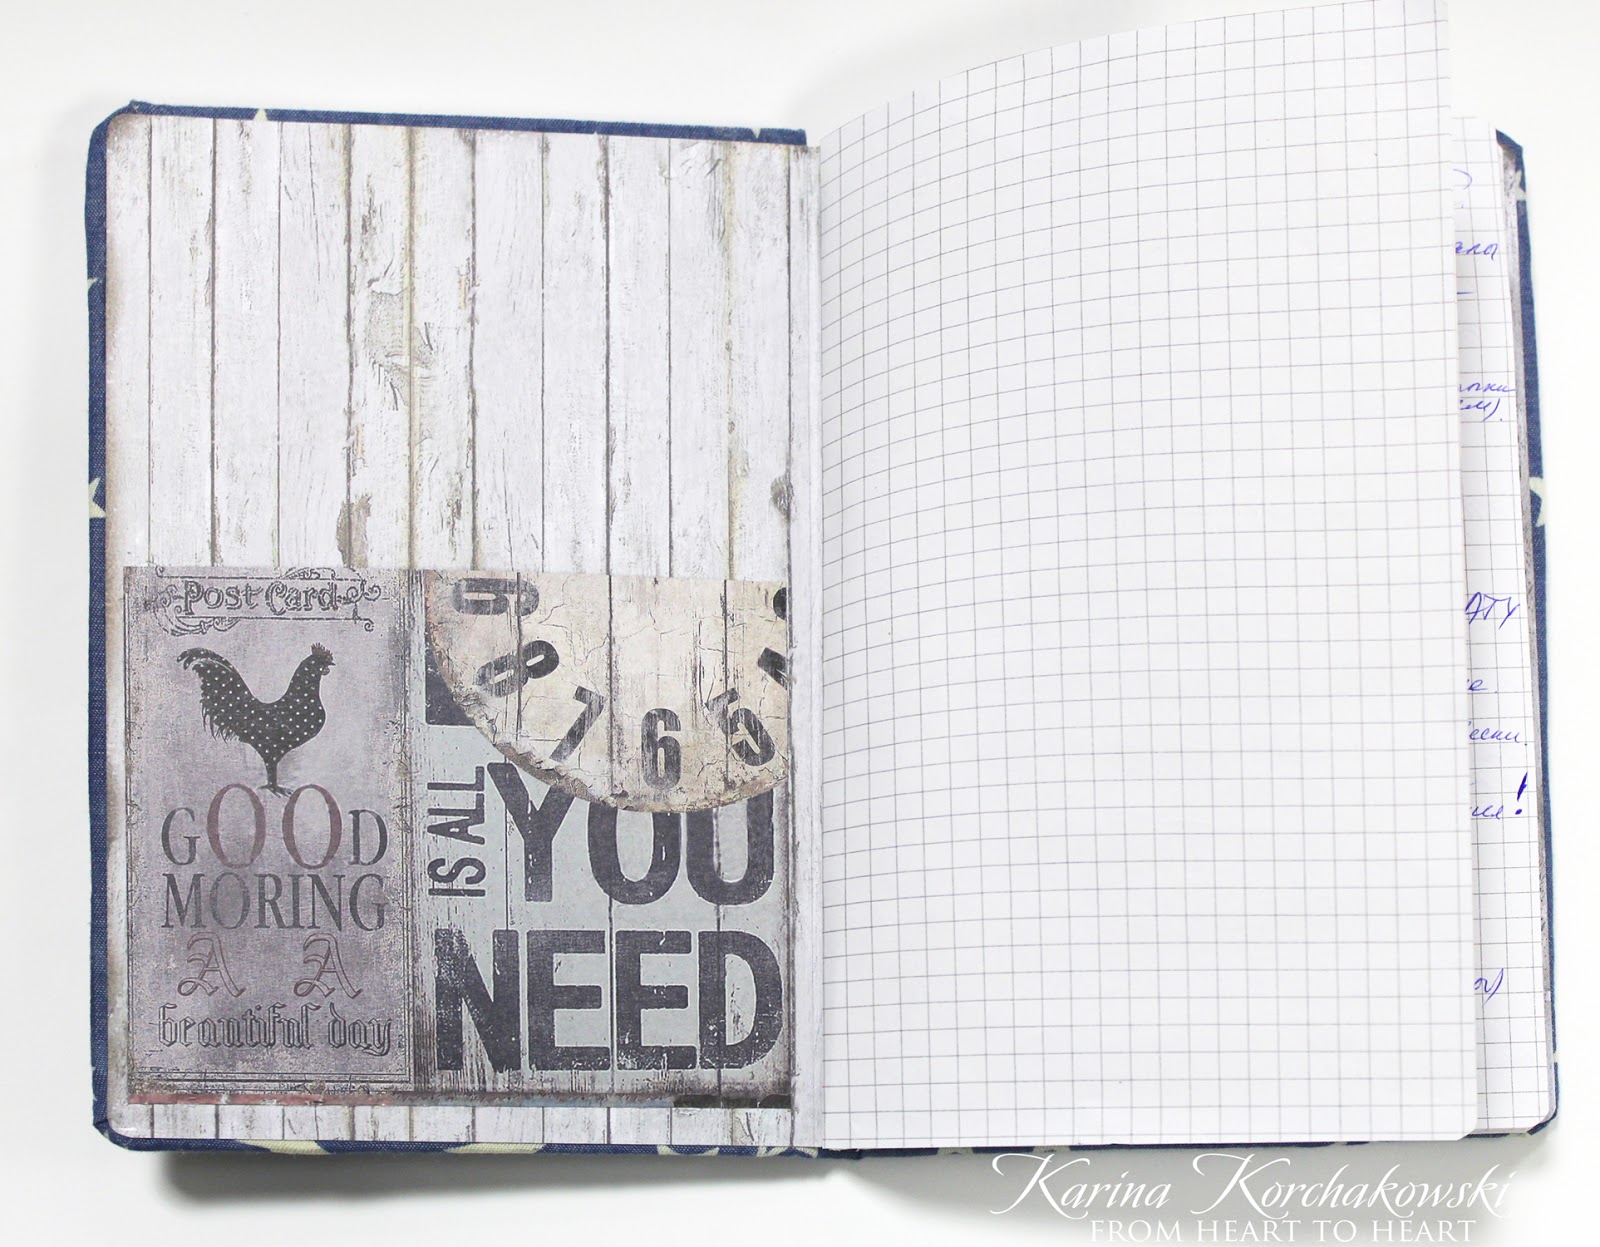 Post Card
GOOD
MORING
A A
beautiful day
9
8
7
6
5
IS ALL
YOU
NEED
АТУ
!
Karina Korchakowski
FROM HEART TO HEART